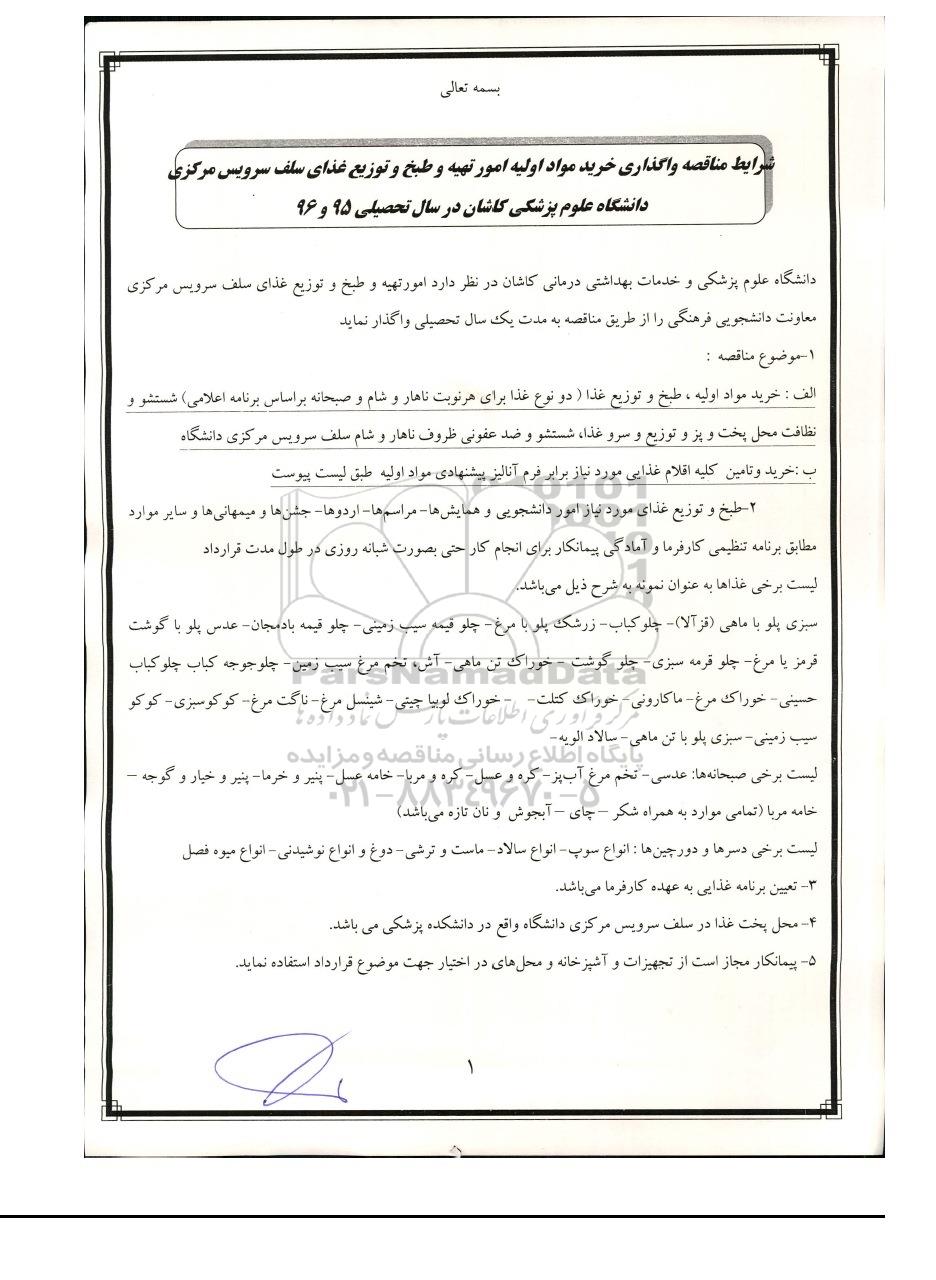 بسمه تعالی
شرایط مناقصه واگذاری خرید مواد اولیه امور تهیه و طبخ و توزیع غذای سلف سرویس مرکزی
دانشگاه علوم پزشکی کاشان در سال تحصیلی ۹۵ و ۹۶
دانشگاه علوم پزشکی و خدمات بهداشتی درمانی کاشان در نظر دارد امورتهیه و طبخ و توزیع غذای سلف سرویس مرکزی
معاونت دانشجویی فرهنگی را از طریق مناقصه به مدت یک سال تحصیلی واگذار نماید
۱-موضوع مناقصه :
الف : خرید مواد اولیه ، طبخ و توزیع غذا ( دو نوع غذا برای هرنوبت ناهار و شام و صبحانه براساس برنامه اعلامی) شستشو و
نظافت محل پخت و پز و توزیع و سرو غذا، شستشو و ضد عفونی ظروف ناهار و شام سلف سرویس مرکزی دانشگاه
ب :خرید وتامین کلیه اقلام غذایی مورد نیاز برابر فرم آنالیز پیشنهادی مواد اولیه طبق لیست پیوست
۲-طبخ و توزیع غذای مورد نیاز امور دانشجویی و همایش‌ها- مراسم‌ها- اردوها- جشن‌ها و میهمانی‌ها و سایر موارد
مطابق برنامه تنظیمی کارفرما و آمادگی پیمانکار برای انجام کار حتی بصورت شبانه روزی در طول مدت قرارداد
لیست برخی غذاها به عنوان نمونه به شرح ذیل می‌باشد.
سبزی پلو با ماهی (قزآلا)- چلوکباب- زرشک پلو با مرغ- چلو قیمه سیب زمینی- چلو قیمه بادمجان- عدس پلو با گوشت
قرمز یا مرغ- چلو قرمه سبزی- چلو گوشت - خوراک تن ماهی- آش، تخم مرغ سیب زمین- چلوجوجه کباب چلوکباب
حسینی- خوراک مرغ- ماکارونی- خوراک کتلت- - خوراک لوبیا چیتی- شینسل مرغ- ناگت مرغ- کوکوسبزی- کوکو
سیب زمینی- سبزی پلو با تن ماهی- سالاد الویه-
لیست برخی صبحانه‌ها: عدسی- تخم مرغ آب‌پز- کره و عسل- کره و مربا- خامه عسل- پنیر و خرما- پنیر و خیار و گوجه –
خامه مربا (تمامی موارد به همراه شکر –چای – آبجوش و نان تازه می‌باشد)
لیست برخی دسرها و دورچین‌ها : انواع سوپ- انواع سالاد- ماست و ترشی- دوغ و انواع نوشیدنی- انواع میوه فصل
۳- تعیین برنامه غذایی به عهده کارفرما می‌باشد.
۴- محل پخت غذا در سلف سرویس مرکزی دانشگاه واقع در دانشکده پزشکی می باشد.
۵- پیمانکار مجاز است از تجهیزات و آشپزخانه و محل‌های در اختیار جهت موضوع قرارداد استفاده نماید.
ParsNamadData
مرکز فرآوری اطلاعات پارس نماد داده ها
پایگاه اطلاع رسانی مناقصه و مزایده
۰۲۱-۸۸۳۴۹۶۷۰-۵
۱